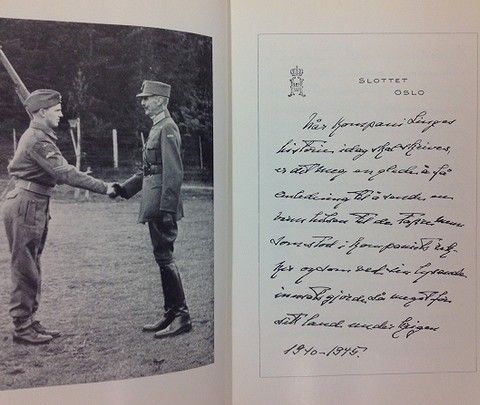 SLOTTET
OSLO
Når Kompani Linges
historie i dag skal skrives,
er det meg en glede å få
anledning til å sende en
hilsen til de tapre menn
som stod i Kompaniets rek-
ker og som ved sin lysende
innsats gjorde så meget for
sitt land under krigen
1940-1945.